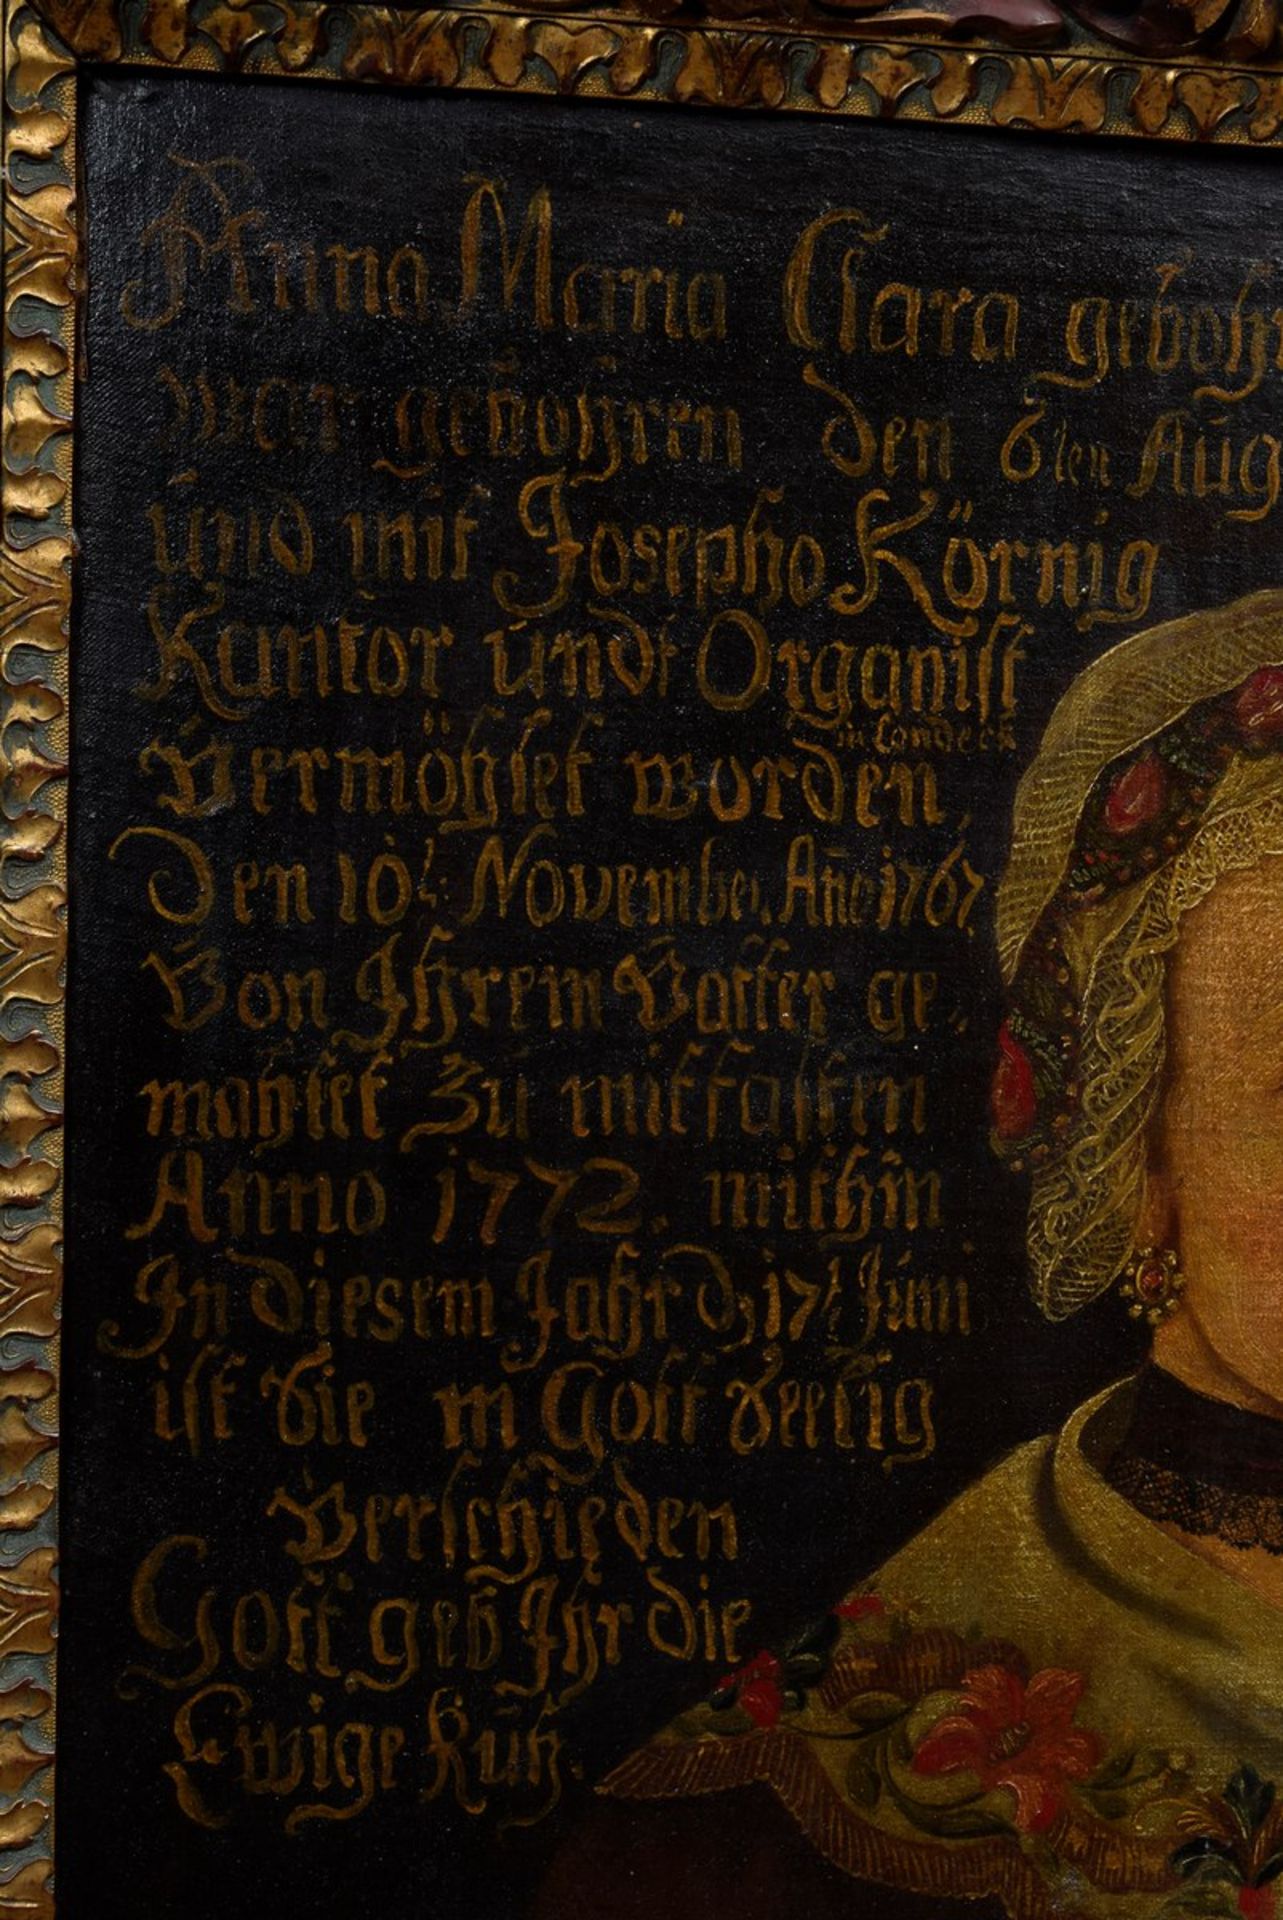 Anna Maria Clara gebohr
war gebohren den 6ten Aug
und mit Josepho Körnig
Kantor undt Organist
in Landeck
Vermöhlet worden,
Den 10t. November Año 1767.
Von Ihrem Vatter ge=
mahlet Zu mittfasten
Anno 1772. mithin
In diesem Jahr d, 17t Juni
ist Sie in Gott Seelig
Verschieden
Gott geb Ihr die
Ewige Ruh.